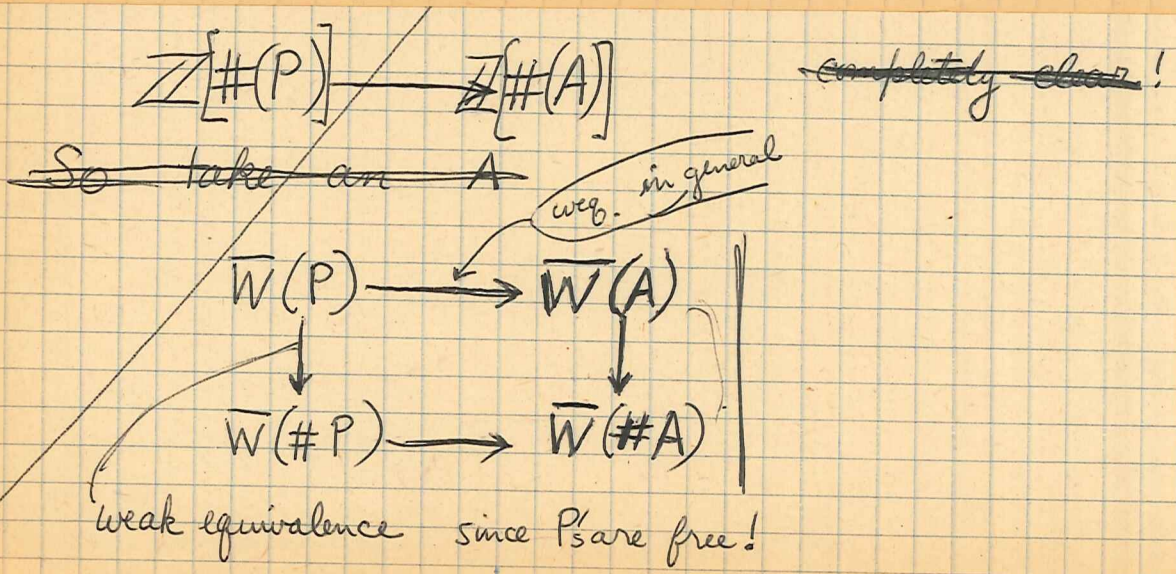 ℤ[#(P)] → ℤ[#(A)]
completely clear!
So take an A
weq. in general
W̅(P) → W̅(A)
W̅(#P) → W̅(#A)
weak equivalence since P's are free!